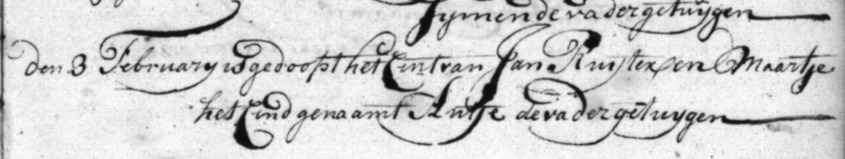 Tymen de vader getuijgen
den 3 February is gedoopt het Cint van Jan Ruijter en Maartje
het Cind genaamt Antje de vader getuijgen